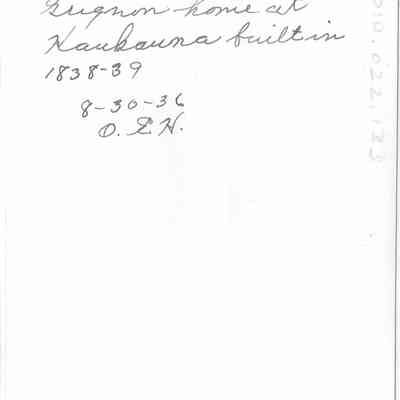 Grignon home at
Kaukauna built in
1838-39
8-30-36
O. E. H.
010.022.123